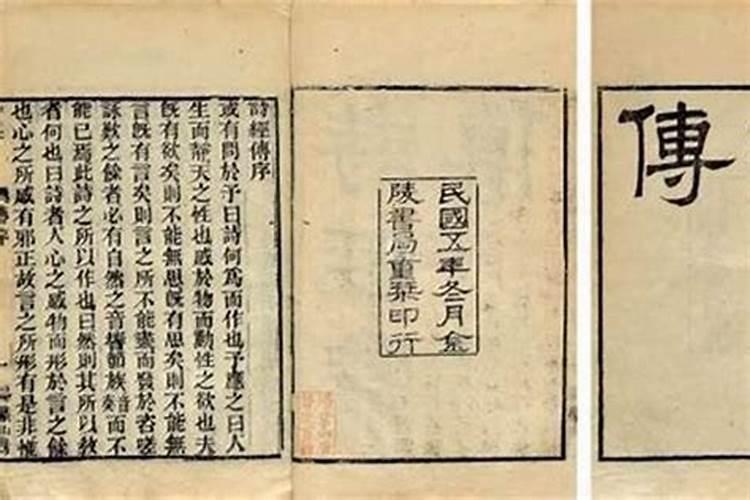 傳
民國五年冬月金
陵書局重栞印行
詩經傳序
或有問於予曰詩何爲而作也予應之曰人
生而靜天之性也感於物而動性之欲也夫
旣有欲矣則不能無思旣有思矣則不能無
言旣有言矣則言之所不能盡而發於咨嗟
詠歎之餘者必有自然之音響節族音奏而不
能已焉此詩之所以作也曰然則其所以敎
者何也曰詩者人心之感物而形於言之餘
也心之所感有邪正故言之所形有是非惟